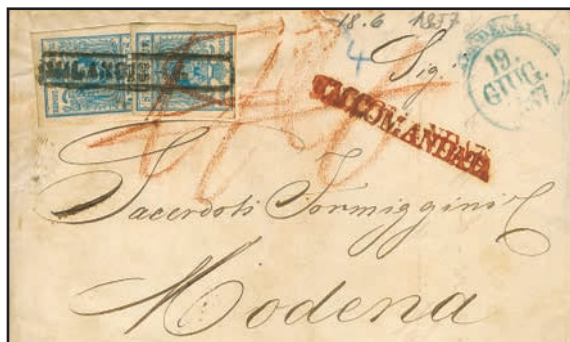 18.6 1857
4
Sig.
19
GIUG.
RACCOMANDATA
Sacerdoti Formiggini
Modena